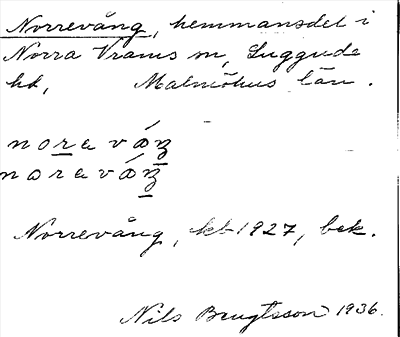 Norrevång, hemmansdel i
Norra Vrams sn, Luggude
hd, Malmöhus län.
nora váŋ
nora váŋ
Norrevång, kb 1927, bek.
Nils Bengtsson 1936.